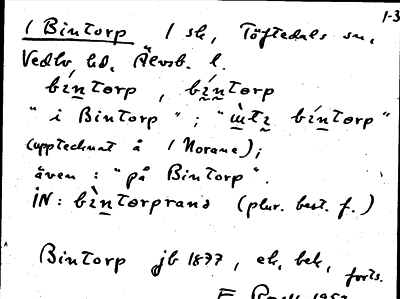 1-3
1 Bintorp 1 sk, Töftedals sn,
Vedbo hd, Älvsb. l.
bíntorp, bíntorp
"i Bintorp"; " bíntorp"
(upptecknat å 1 Norane);
även: "på Bintorp".
iN: bìntorprana (plur. best. f.)
Bintorp jb 1877, ek, bek,
forts.